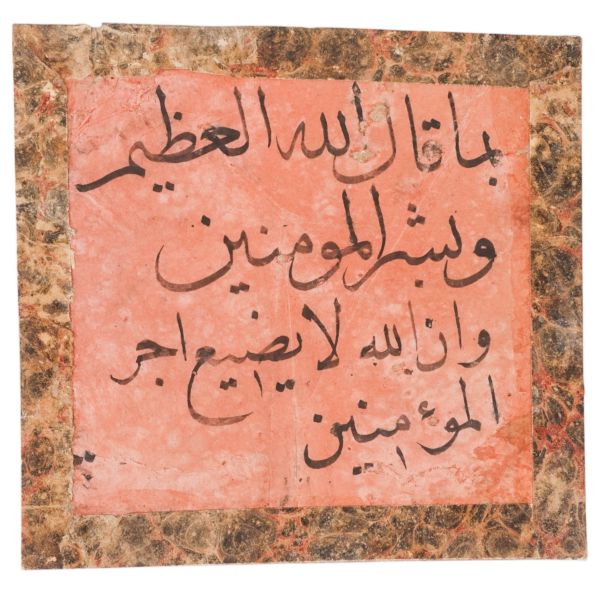 بما قال الله العظيم
وبشر المومنين
وان الله لا يضيع اجر
الموءمنين